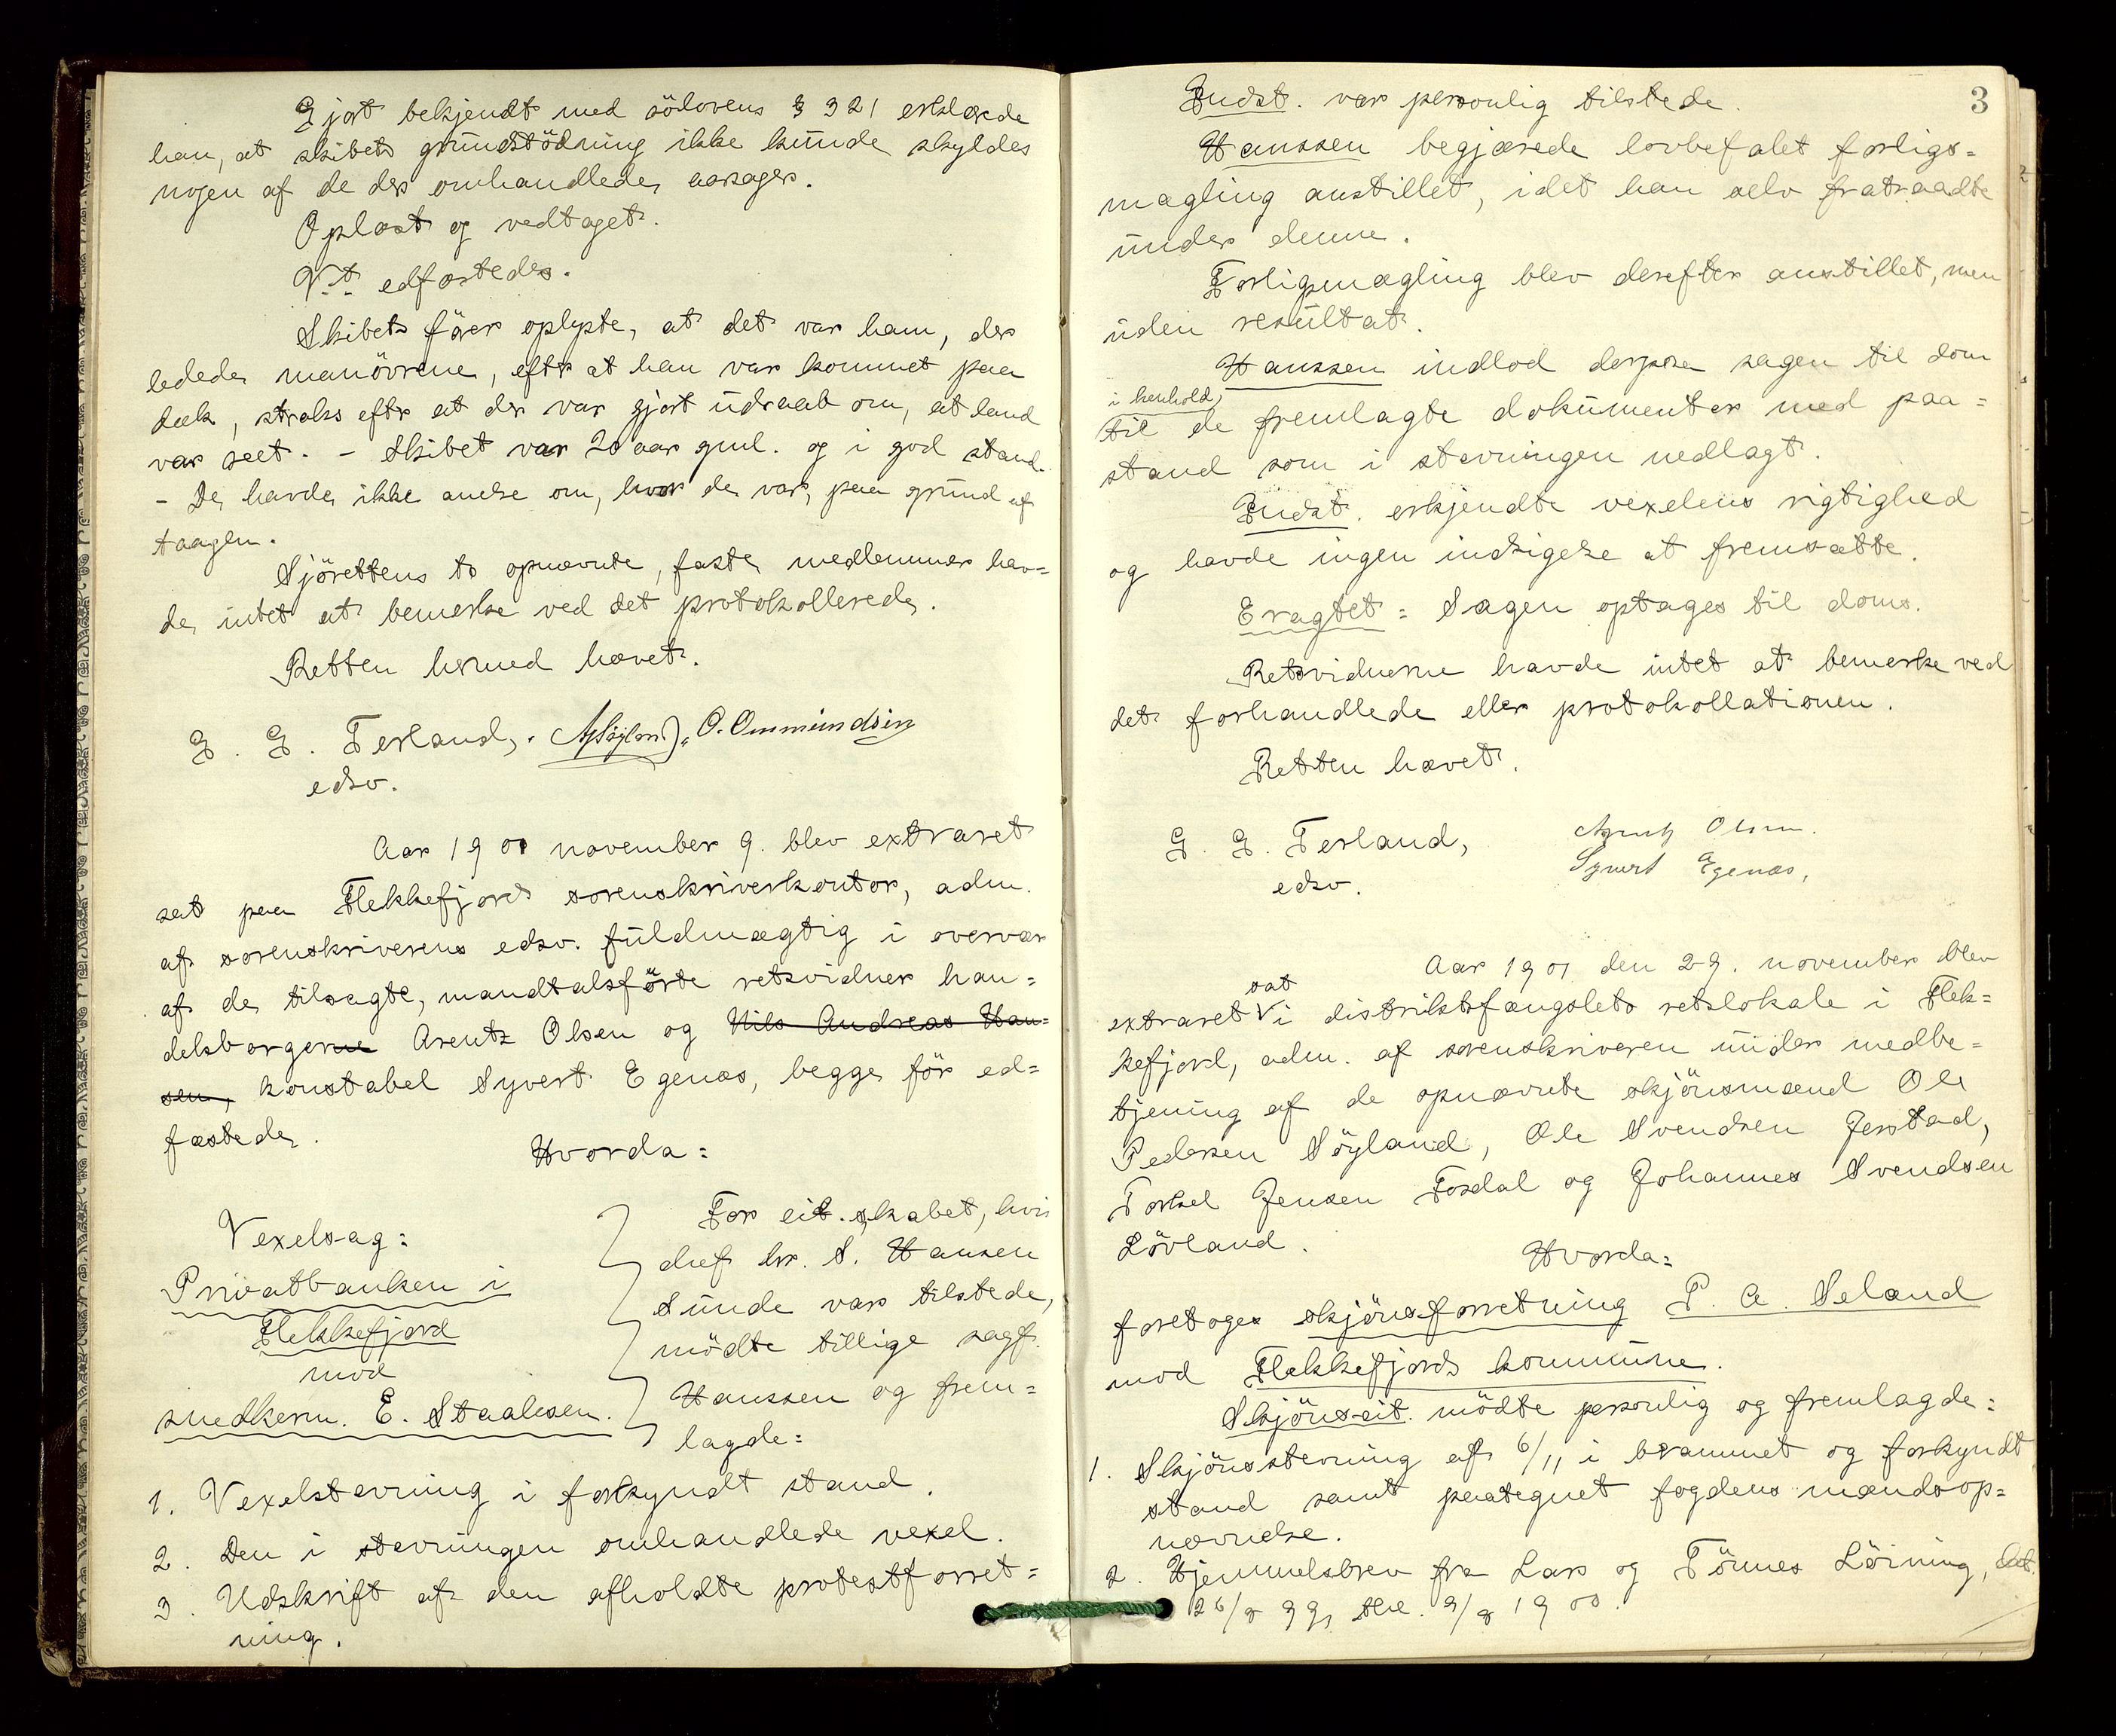 Gjort bekjendt med sölovens § 321 erklærede
han, at skibets grundstödning ikke kunde skyldes
nogen af de der omhandlede aarsager.
Oplæst og vedtaget.
Vt. edfæstedes.
Skibets förer oplyste, at det var ham, der
ledede manövrene, eftr at han var kommet paa
dæk, straks eftr at der var gjort udraab om, at land
var seet. - Skibet var 20 aar gml. og i god stand.
- De havde ikke anelse om, hvor de var, paa grund af
taagen.
Sjörettens to opnævnte, faste medlemmer hav=
de intet at bemerke ved det protokollerede.
Retten hermed hævet.
G. G. Terland, O. Ommundsen
edsv.
Aar 1901 november 9. blev extraret
sat paa Flekkefjords sorenskriverkontor, adm.
af sorenskriverens edsv. fuldmægtig i overvær
af de tilsagte, mandtalsförte retsvidner han=
delsborgerne Arentz Olsen og Nils Andreas Han=
sen, konstabel Syvert Egenæs, begge för ed=
fæstede.
Hvorda:
Vexelsag:
Privatbanken i
Flekkefjord
mod
snedkerm. E. Staalesen.
For cit.skabet, hvis
chef hr. S. Hansen
Sunde var tilstede,
mödte tillige sagf.
Hanssen og frem=
lagde:
1. Vexelstevning i forkyndt stand.
2. Den i stevningen omhandlede vexel.
3. Udskrift af den afholdte protestforret=
ning.
3
Indst. var personlig tilstede.
Hanssen begjærede lovbefalet forligs=
mægling anstillet, idet han selv fratraadte
under denne.
Forligsmægling blev derefter anstillet, men
uden resultat.
Hanssen indlod derpaa sagen til dom
i henhold
til de fremlagte dokumenter med paa=
stand som i stevningen nedlagt.
Indst. erkjendte vexelens rigtighed
og havde ingen indsigelse at fremsætte.
Eragtet: Sagen optages til doms.
Retsvidnerne havde intet at bemerke ved
det forhandlede eller protokollationen.
Retten hævet.
G. G. Terland,
edsv.
Arentz Olsen.
Syvert Egenæs,
Aar 1901 den 29. november blev
sat
extraret i distriktsfængslets retslokale i Flek=
kefjord, adm. af sorenskriveren under medbe=
tjening af de opnævnte skjönsmænd Ole
Pedersen Söyland, Ole Svendsen Jerstad,
Torkel Jensen Fosdal og Johannes Svendsen
Lövland.
Hvorda:
foretoges skjönsforretning P. A. Seland
mod Flekkefjords kommune.
Skjönscit. mödte personlig og fremlagde:
1. Skjönsstevning af 6/11 i beramnet og forkyndt
stand samt paategnet fogdens mændsop=
nævnelse.
2. Hjemmelsbrev fra Lars og Tönnes Löining, dat.
26/8 99, thl. 9/8 1900.